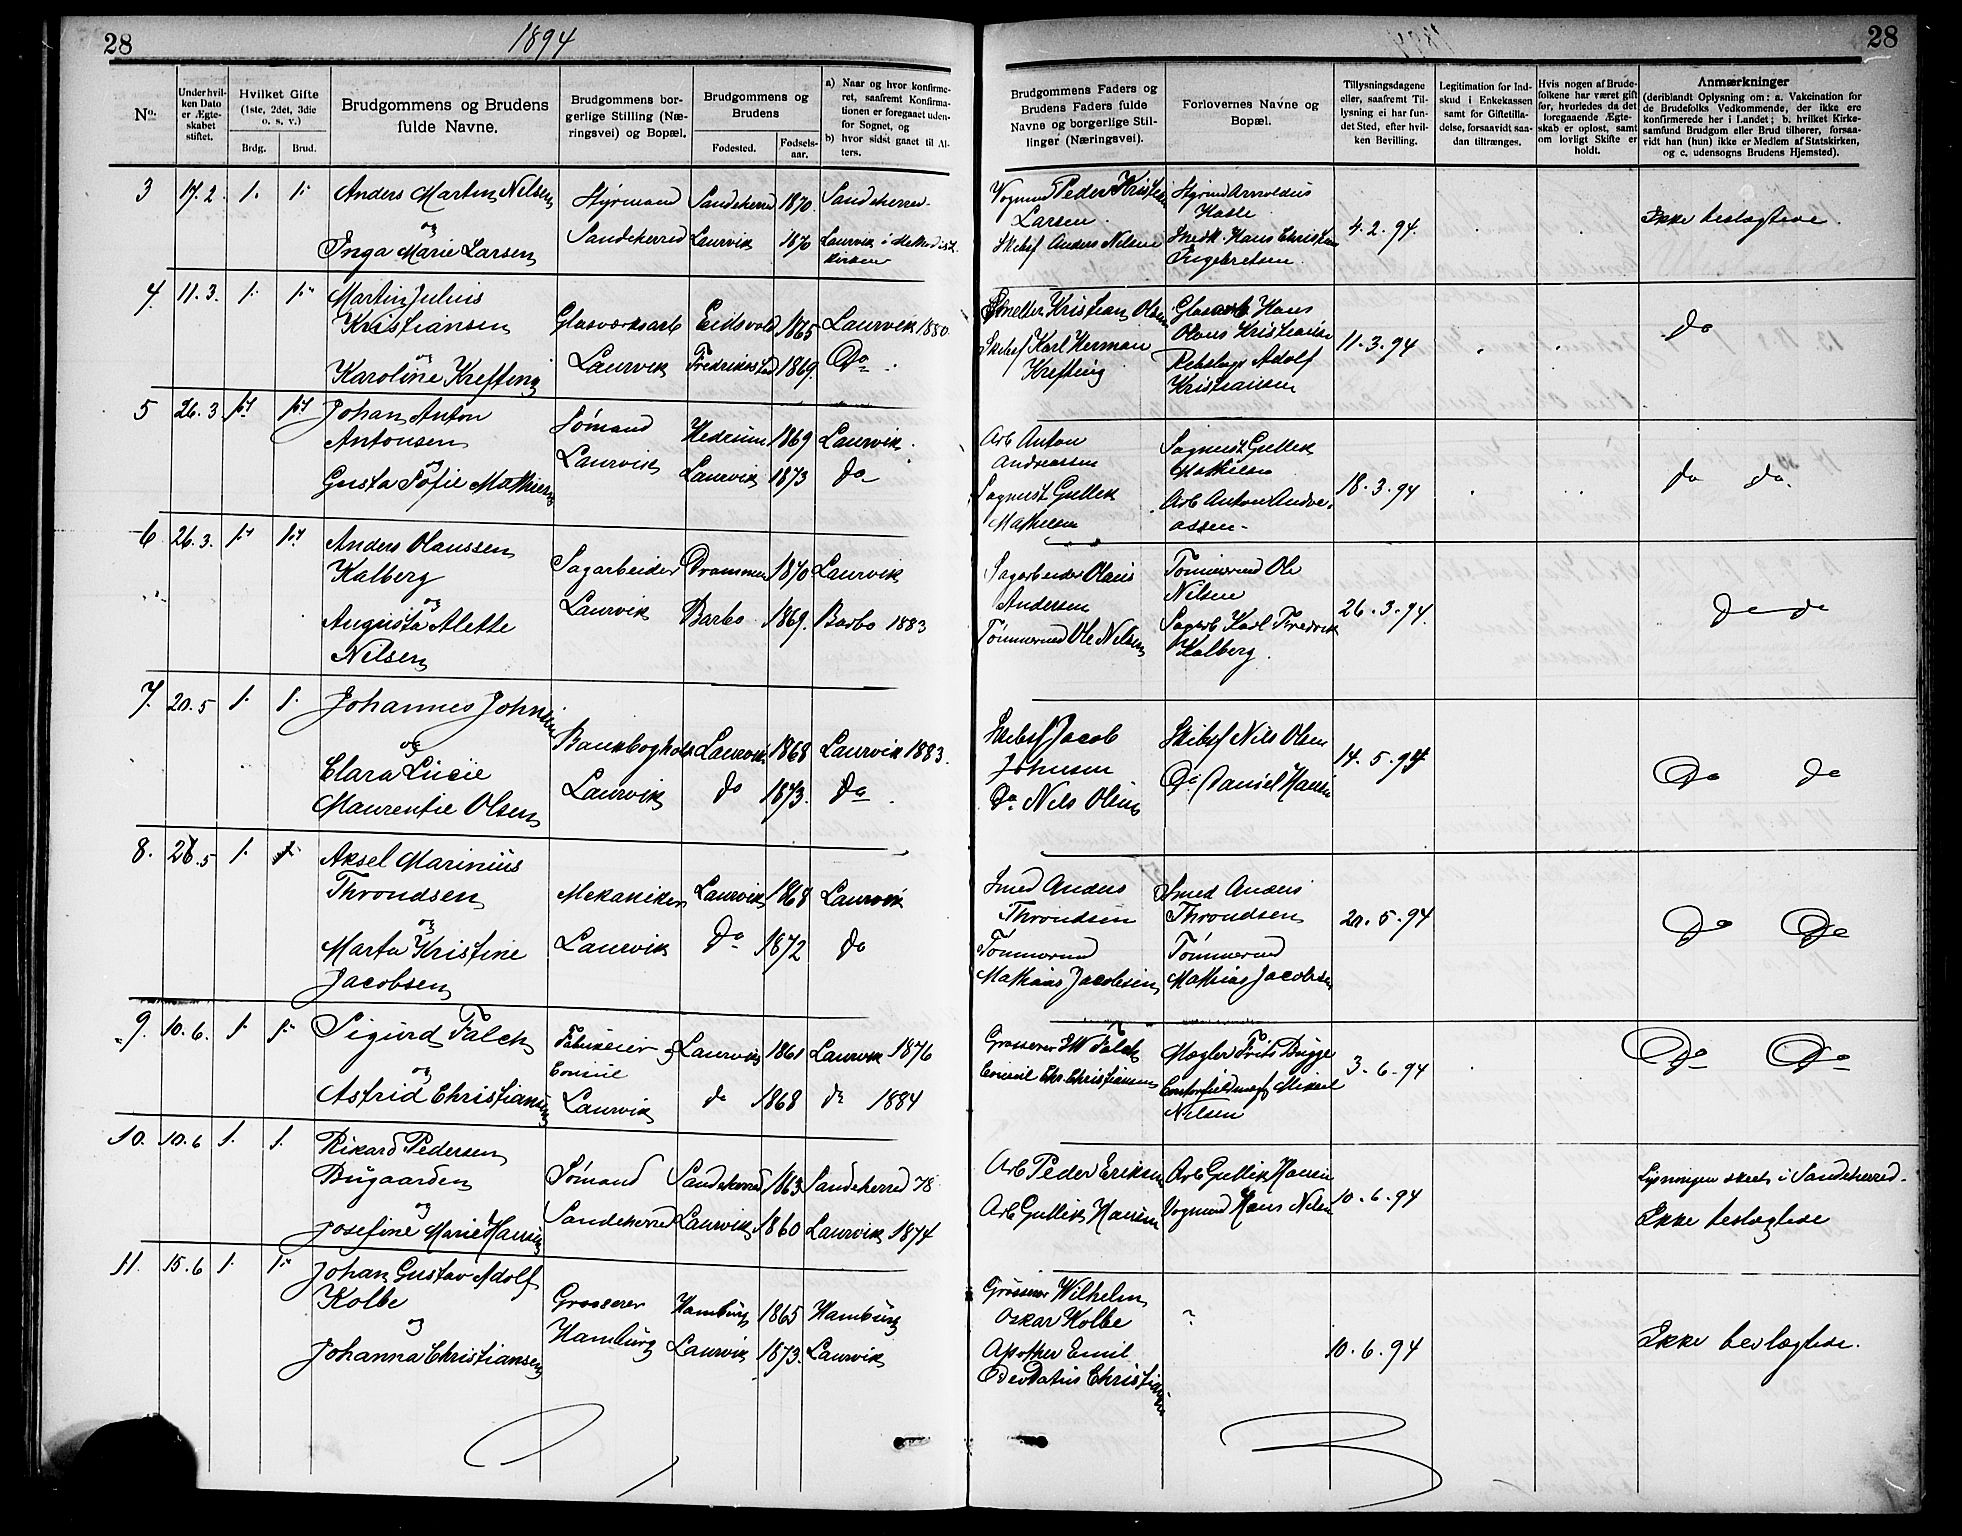 28
1894
28
No.
Under hvilken Dato er Ægteskabet stiftet.
Hvilket Gifte (1ste, 2det, 3die o. s. v.)
Brdg.
Brud.
Brudgommens og Brudens fulde Navne.
Brudgommens borgerlige Stilling (Næringsvei) og Bopæl.
Brudgommens og Brudens
Fødested.
Fødselsaar.
a) Naar og hvor konfirmeret, saafremt Konfirmationen er foregaaet udenfor Sognet, og
b) hvor sidst gaaet til Alters.
Brudgommens Faders og Brudens Faders fulde Navne og borgerlige Stillinger (Næringsvei).
Forlovernes Navne og Bopæl.
Tillysningsdagene eller, saafremt Tillysning ei har fundet Sted, efter hvilken Bevilling.
Legitimation for Indskud i Enkekassen samt for Giftetilladelse, forsaavidt saadan tiltrænges.
Hvis nogen af Brudefolkene har været gift før, hvorledes da det foregaaende Ægteskab er opløst, samt om lovligt Skifte er holdt.
Anmærkninger
(deriblandt Oplysning om: a. Vakcination for de Brudefolks Vedkommende, der ikke ere konfirmerede her i Landet; b. hvilket Kirkesamfund Brudgom eller Brud tilhører, forsaavidt han (hun) ikke er Medlem af Statskirken, og c. udensogns Brudens Hjemsted).
3 17.2. 1. 1. Anders Martin Nilsen Styrmand Sandeherred 1870. Sandeherred. Vognmd Peder Kristian Styrmd Arnoldus
og Larsen Hasle 4.2.94. Ikke beslægtede.
Inga Marie Larsen Sandeherred Laurvik 1870 Laurvik i Methodist Skibsf Anders Nilsen Smedk. Hans Christian
kirken Engebretsen.
4. 11.3. 1. 1. Martin Julius Smelter Kristian Olsen Glasarb Hans
Kristiansen Glasværksarb Eidsvold 1865 Laurvik 1880. Olaus Kristiansen do
og Laurvik Fredrikstad 1869. Do Skibsf Karl Herman Rebslager Adolf 11.3.94
Karoline Krefting Krefting Kristiansen
5 26.3. Johan Anton Sømand Hedrum 1869 Laurvik. Arb Anton Sagmest Gullik
Antonsen Andreassen Mathisen
og Laurvik Laurvik 1873 do Sagmest Gullik Arb Anton Andre- 18.3.94 do do.
Gusta Sofie Mathisen Mathisen assen.
6 26.3. Anders Olaussen Sagarbeider Drammen 1870 Laurvik Sagarbeider Olaus Tømmermd Ole
Kalberg Andersen Nilsen 26.3.94.
og Laurvik Barbo 1869. Barbo 1883 Tømmermd Ole Nilsen Sagarb Karl Fredrik do do
Augusta Alette Kalberg.
Nilsen
7. 20.5 1. 1. Johannes Johnsen Bankbogholder Laurvik 1868 Laurvik 1883. Skibsf Jacob Skibsf Nils Olsen
og Johnsen 14.5.94
Clara Lucie Laurvik do 1873. do. Do Nils Olsen Do Daniel Hansen Do do
Maurentie Olsen
8. 26.5 1. Aksel Marinius Smed Anders Smed Anders
Throndsen Mekaniker Laurvik 1868 Laurvik Throndsen Throndsen 20.5.94 Do Do
og Tømmermd Tømmermd
Marta Kristine Laurvik Do 1872 do Mathias Jacobsen Mathias Jacobsen
Jacobsen
9. 10.6. 1. 1. Sigurd Falck Fabrikeier og Laurvik 1861 Laurvik 1876 Grosserer Falck Mægler Frits Bugge
og Consul 3.6.94 Do Do
Astrid Christiansen Laurvik do 1868 do 1884 Consul Chr. Christiansen Mikael
Nilsen
10. 10.6 1. 1. Rikard Pedersen
Bugaarden Sømand Sandeherred 1863 Sandeherred 78 Arb Peder Eriksen Arb Gullik Hansen Lysningen skeet i Sandeherred.
og 10.6.94
Josefine Marie Hansen Sandeherred Laurvik 1860 Laurvik 1874 Arb Gullik Hansen Vognmd Hans Nilsen Ikke beslægtede
11. 15.6 1. 1. Johan Gustav Adolf Grosserer Hamburg 1865 Hamburg Grosserer Wilhelm
Kolbe Oskar Kolbe ?
og Hamburg Laurvik 1873. Laurvik Apotheker Emil 10.6.94 Ikke beslægtede.
Johanna Christiansen Deodatus Christiansen